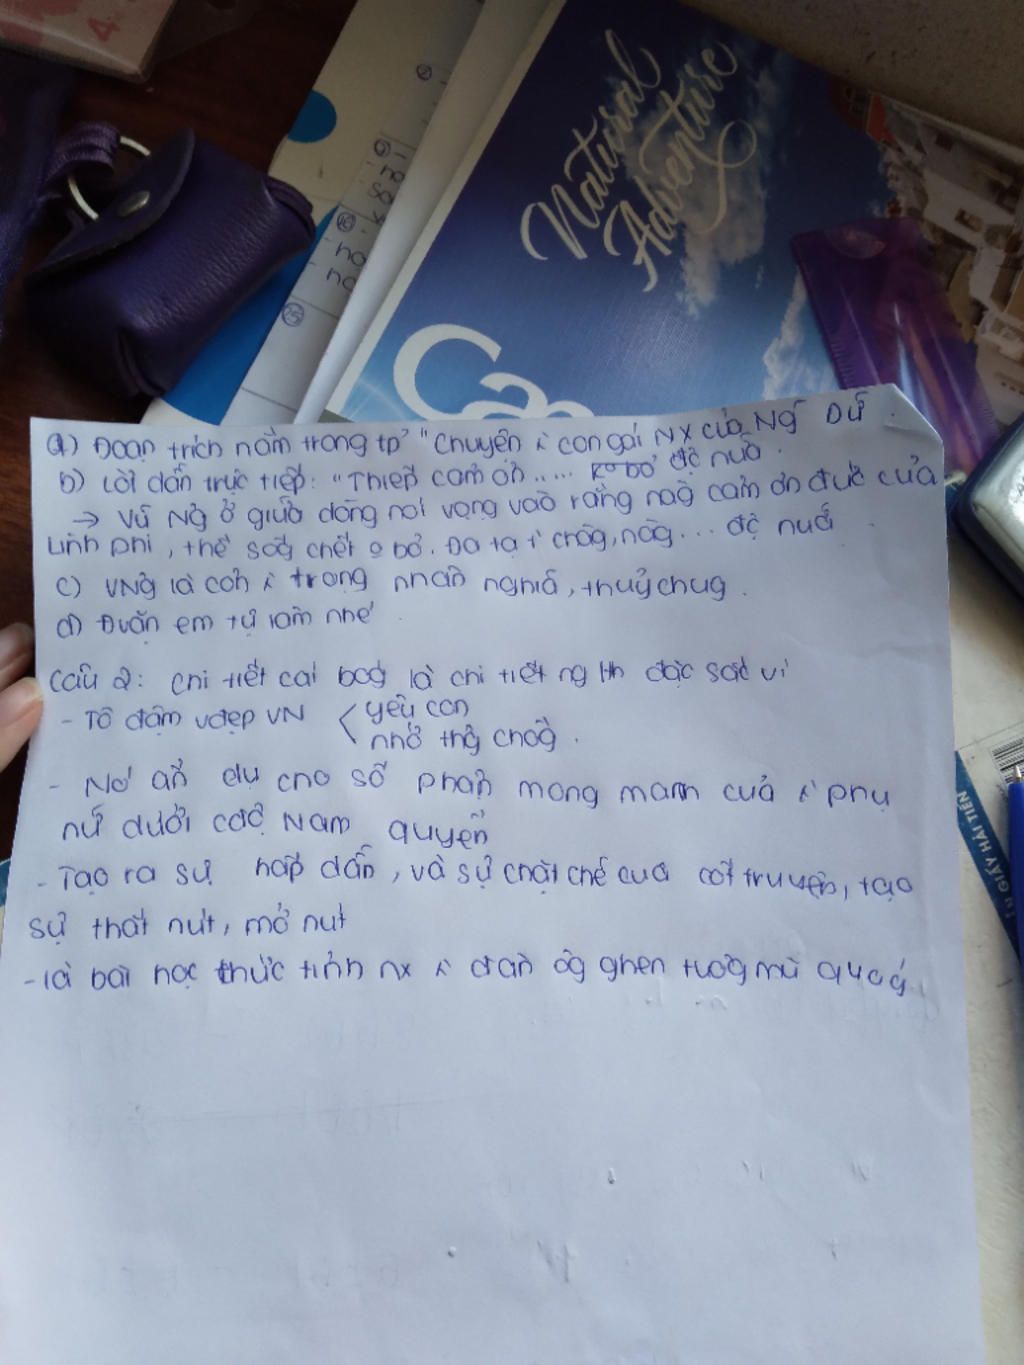 Natural
Adventure
Ca
a) Đoạn trích nằm trong tp' "Chuyện ời con gái NX của Ng~ Dữ
b) Lời dẫn trực tiếp: "Thiếp cảm ơn..... ko bơ' độ nữa.
→ Vũ Ng ở giữa dòng nói vọng vào rằng nàg cảm ơn đức của
Linh Phi, thề sốg chết o bỏ. Đa tạ chàg, nàg... độ nữa
c) VNg là con trọng nhân nghĩa, thuỷ chug.
d) Đvăn em tự làm nhé
Câu 2: Chi tiết cái bóg là chi tiết ng th đặc sắc vì
- Tô đậm vđẹp VN < yêu con
nhớ thg chồg.
- Nó ẩn dụ cho số phận mong manh của phụ
nữ dưới cđộ Nam quyền
- Tạo ra sự hấp dẫn, và sự chặt chẽ của cốt truyện, tạo
sự thắt nút, mở nút
- là bài học thức tỉnh nx đàn ôg ghen tuôg mù quág
ẤN GIẤY HẢI TIẾN